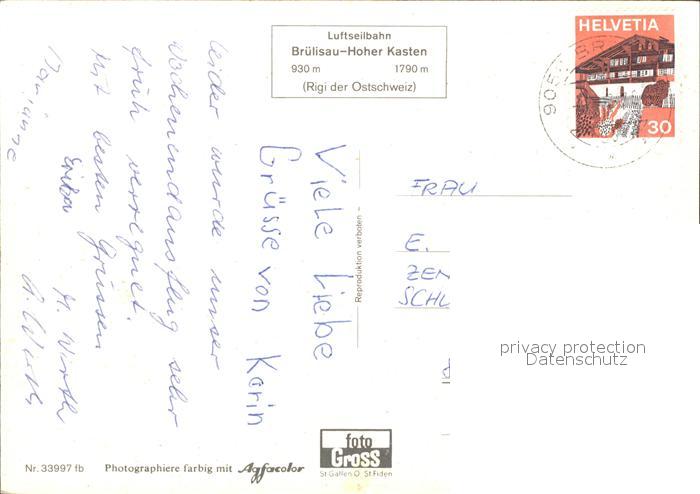 Luftseilbahn
Brülisau–Hoher Kasten
930 m 1790 m
(Rigi der Ostschweiz)
HELVETIA
30
Viele Liebe
Grüsse von Karin
leider wurde unser
Wochenendausflug sehr
früh verregnet.
Mit besten Grüssen
Erika
M. Wirth
Reproduktion verboten –
FRAU
E.
ZEN
SCHL
privacy protection
Datenschutz
foto
Gross
St.Gallen O. St.Fiden
Nr. 33997 fb Photographiere farbig mit Agfacolor